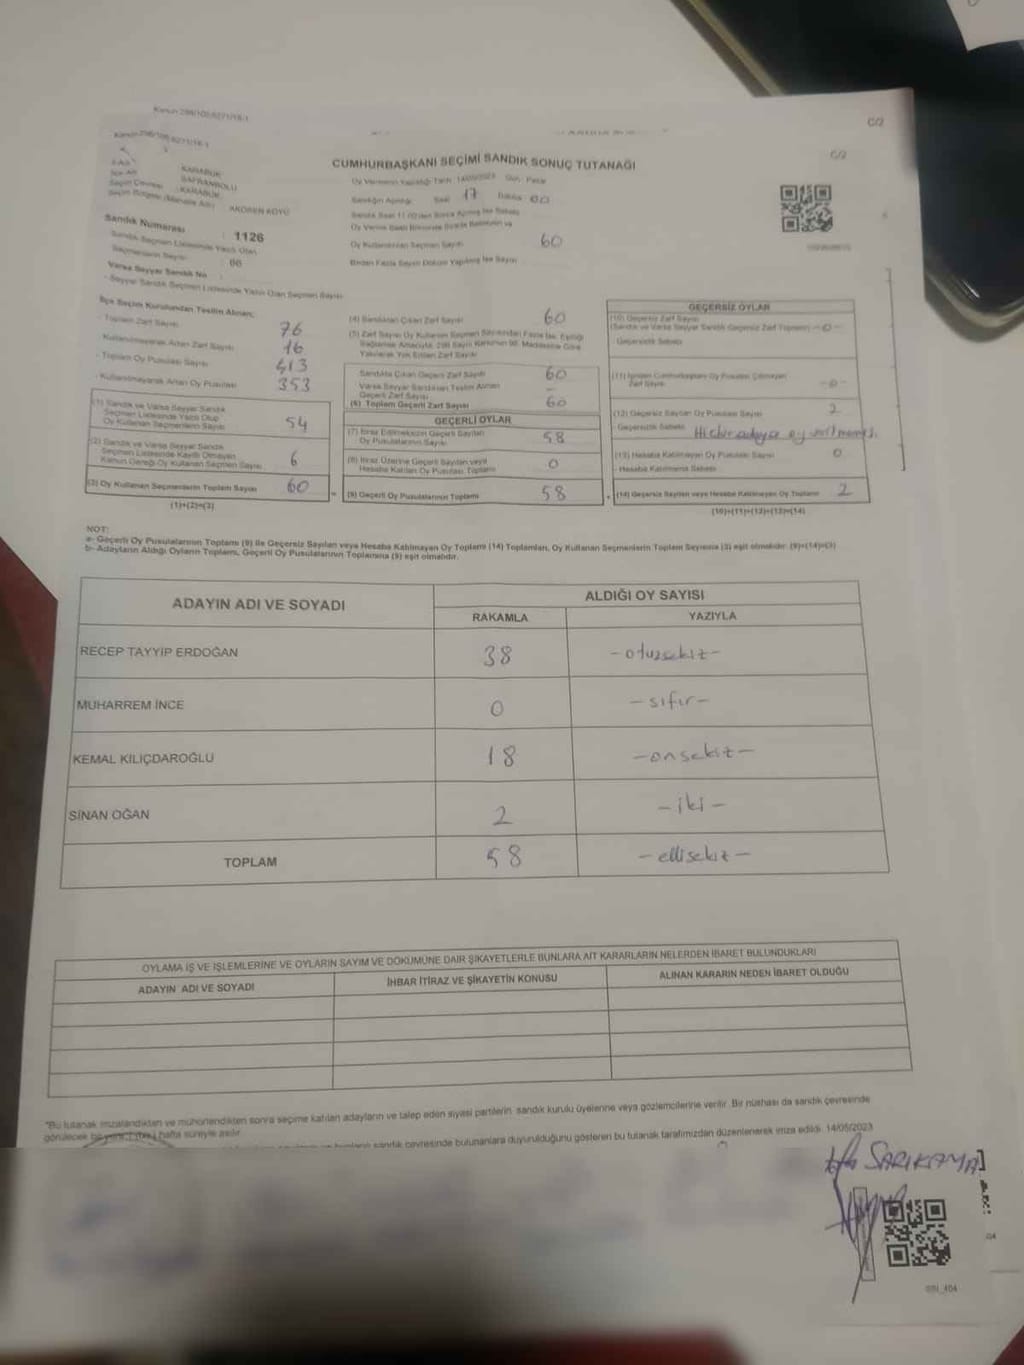 Kanun 298/105,6271/18-1
C/2
Kanun 298/105,6271/18-1
C/2
CUMHURBAŞKANI SEÇİMİ SANDIK SONUÇ TUTANAĞI
KARABÜK
SAFRANBOLU
KARABÜK
AKÖREN KÖYÜ
Oy Vermenin Yapıldığı Tarih: 14/05/2023 Gün: Pazar
Sandığın Açıldığı Saat 17 Dakika 00
Sandık Numarası : 1126
Oy Kullanan Seçmen Sayısı 60
Varsa Seyyar Sandık No
- Seyyar Sandık Seçmen Listesinde Yazılı Olan Seçmen Sayısı
İlçe Seçim Kurulundan Teslim Alınan;
- Toplam Zarf Sayısı 76
- Kullanılmayarak Artan Zarf Sayısı 16
- Toplam Oy Pusulası Sayısı 413
- Kullanılmayarak Artan Oy Pusulası 353
(1) Sandık ve Varsa Seyyar Sandık
Seçmen Listesinde Yazılı Olup
Oy Kullanan Seçmenlerin Sayısı 54
(2) Sandık ve Varsa Seyyar Sandık
Seçmen Listesinde Kayıtlı Olmayan
Kanun Gereği Oy Kullanan Seçmen Sayısı 6
(3) Oy Kullanan Seçmenlerin Toplam Sayısı 60
(1)+(2)=(3)
(4) Sandıktan Çıkan Zarf Sayısı 60
(5) Zarf Sayısı Oy Kullanan Seçmen Sayısından Fazla İse, Eşitliği
Sağlamak Amacıyla, 298 Sayılı Kanunun 98. Maddesine Göre
Yakılarak Yok Edilen Zarf Sayısı
Sandıkta Çıkan Geçerli Zarf Sayısı 60
Varsa Seyyar Sandıktan Teslim Alınan
Geçerli Zarf Sayısı –
(6) Toplam Geçerli Zarf Sayısı 60
GEÇERLİ OYLAR
(7) İtiraz Edilmeksizin Geçerli Sayılan
Oy Pusulalarının Sayısı 58
(8) İtiraz Üzerine Geçerli Sayılan veya
Hesaba Katılan Oy Pusulası Toplamı 0
(9) Geçerli Oy Pusulalarının Toplamı 58
GEÇERSİZ OYLAR
(10) Geçersiz Zarf Sayısı
(Sandık ve Varsa Seyyar Sandık Geçersiz Zarf Toplamı) -0-
Geçersizlik Sebebi
Zarf Sayısı -0-
(12) Geçersiz Sayılan Oy Pusulası Sayısı 2
- Geçersizlik Sebebi
(13) Hesaba Katılmayan Oy Pusulası Sayısı 0
- Hesaba Katılmama Sebebi
(14) Geçersiz Sayılan veya Hesaba Katılmayan Oy Toplamı 2
(10)+(11)+(12)+(13)=(14)
NOT:
a- Geçerli Oy Pusulalarının Toplamı (9) ile Geçersiz Sayılan veya Hesaba Katılmayan Oy Toplamı (14) Toplamları, Oy Kullanan Seçmenlerin Toplam Sayısına (3) eşit olmalıdır. (9)+(14)=(3)
b- Adayların Aldığı Oyların Toplamı, Geçerli Oy Pusulalarının Toplamına (9) eşit olmalıdır.
ADAYIN ADI VE SOYADI ALDIĞI OY SAYISI
RAKAMLA YAZIYLA
RECEP TAYYİP ERDOĞAN 38 -otuzsekiz-
MUHARREM İNCE 0 -sıfır-
KEMAL KILIÇDAROĞLU 18 -onsekiz-
SİNAN OĞAN 2 -iki-
TOPLAM 58 -ellisekiz-
OYLAMA İŞ VE İŞLEMLERİNE VE OYLARIN SAYIM VE DÖKÜMÜNE DAİR ŞİKAYETLERLE BUNLARA AİT KARARLARIN NELERDEN İBARET BULUNDUKLARI
ADAYIN ADI VE SOYADI İHBAR İTİRAZ VE ŞİKAYETİN KONUSU ALINAN KARARIN NEDEN İBARET OLDUĞU
"Bu tutanak imzalandıktan ve mühürlendikten sonra seçime katılan adayların ve talep eden siyasi partilerin sandık kurulu üyelerine veya gözlemcilerine verilir. Bir nüshası da sandık çevresinde
görülecek bir yere, 1 (bir) hafta süreyle asılır.
sandık çevresinde bulunanlara duyurulduğunu gösteren bu tutanak tarafımızdan düzenlenerek imza edildi. 14/05/2023
SARIKAYA